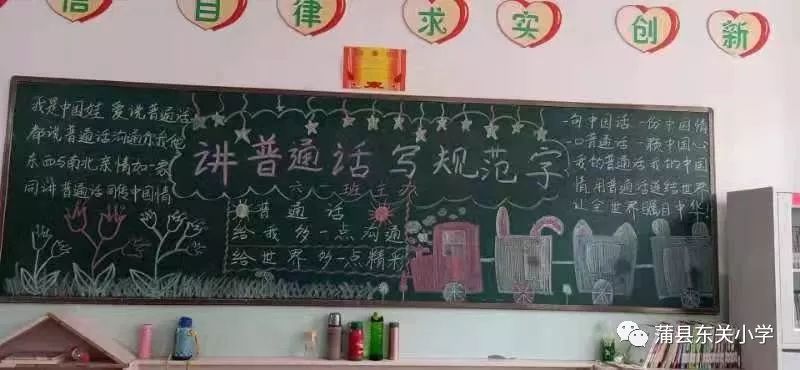 信 自 律 求 实 创 新
讲普通话写规范字
六二班主办
我是中国娃 爱说普通话
都说普通话沟通你我他
东西南北亲情如一家
同讲普通话 同系中国情
普通话
给我多一点沟通
给世界多一点精采
一句中国话 一份中国情
一口普通话 一颗中国心
我的普通话我的中国
情用普通话连给世界
让全世界瞩目中华
蒲县东关小学